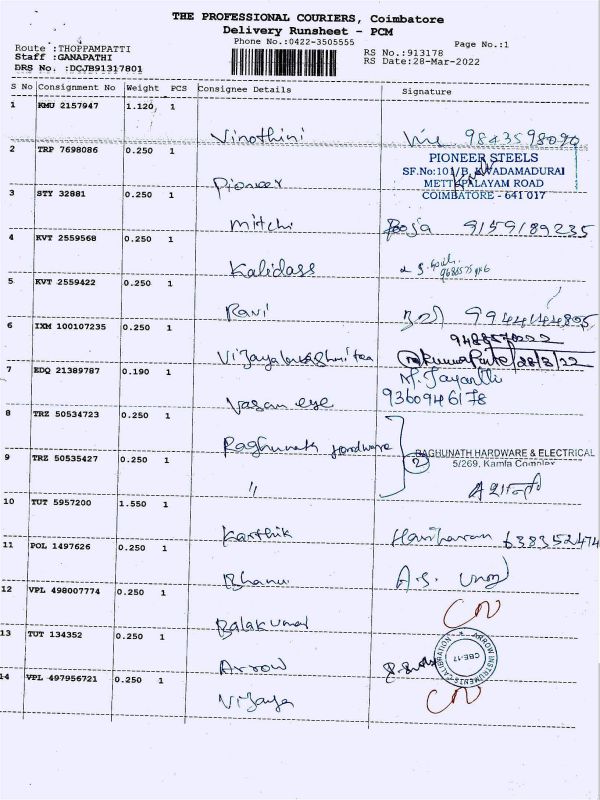 THE PROFESSIONAL COURIERS, Coimbatore
Delivery Runsheet - PCM
Phone No.:0422-3505555 Page No.:1
Route :THOPPAMPATTI RS No.:913178
Staff :GANAPATHI RS Date:28-Mar-2022
DRS No. :DCJB91317801
S No Consignment No Weight PCS Consignee Details Signature
1 KMU 2157947 1.120 1
Vinothini 9843598090
2 TRP 7698086 0.250 1
PIONEER STEELS
SF.No:101/B, KAVADAMADURAI
METTUPALAYAM ROAD
COIMBATORE - 641 017
Pioneer
3 STY 32881 0.250 1
Mitchi Pooja 9159189235
4 KVT 2559568 0.250 1
Kalidass
5 KVT 2559422 0.250 1
Ravi
6 IXM 100107235 0.250 1
28/3/22
7 EDQ 21389787 0.190 1
M. Jayanthi
Vasan eye 9360946178
8 TRZ 50534723 0.250 1
Raghunath hardware
RAGHUNATH HARDWARE & ELECTRICAL
5/269, Kamla Complex
2
9 TRZ 50535427 0.250 1
"
10 TUT 5957200 1.550 1
Karthik Hariharan 6383352474
11 POL 1497626 0.250 1
Bhanu A.S.
12 VPL 498007774 0.250 1
Balakumar
13 TUT 134352 0.250 1
Arrow
ARROW INSTRUMENTS CALIBRATION
CBE-17
14 VPL 497956721 0.250 1
Vijaya